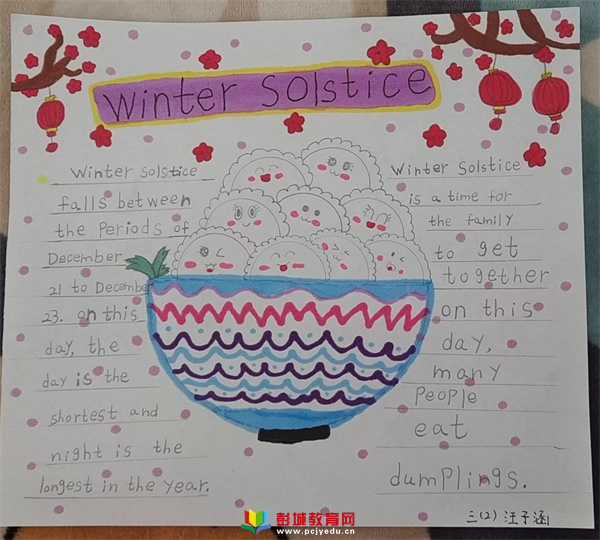 Winter Solstice
Winter solstice
falls between
the Periods of
December
21 to December
23. on this
day, the
day is the
shortest and
night is the
longest in the year.
Winter Solstice
is a time for
the family
to get
together
on this
day,
many
People
eat
dumplings.
三(2) 汪子涵
彭城教育网
www.pcjyedu.cn